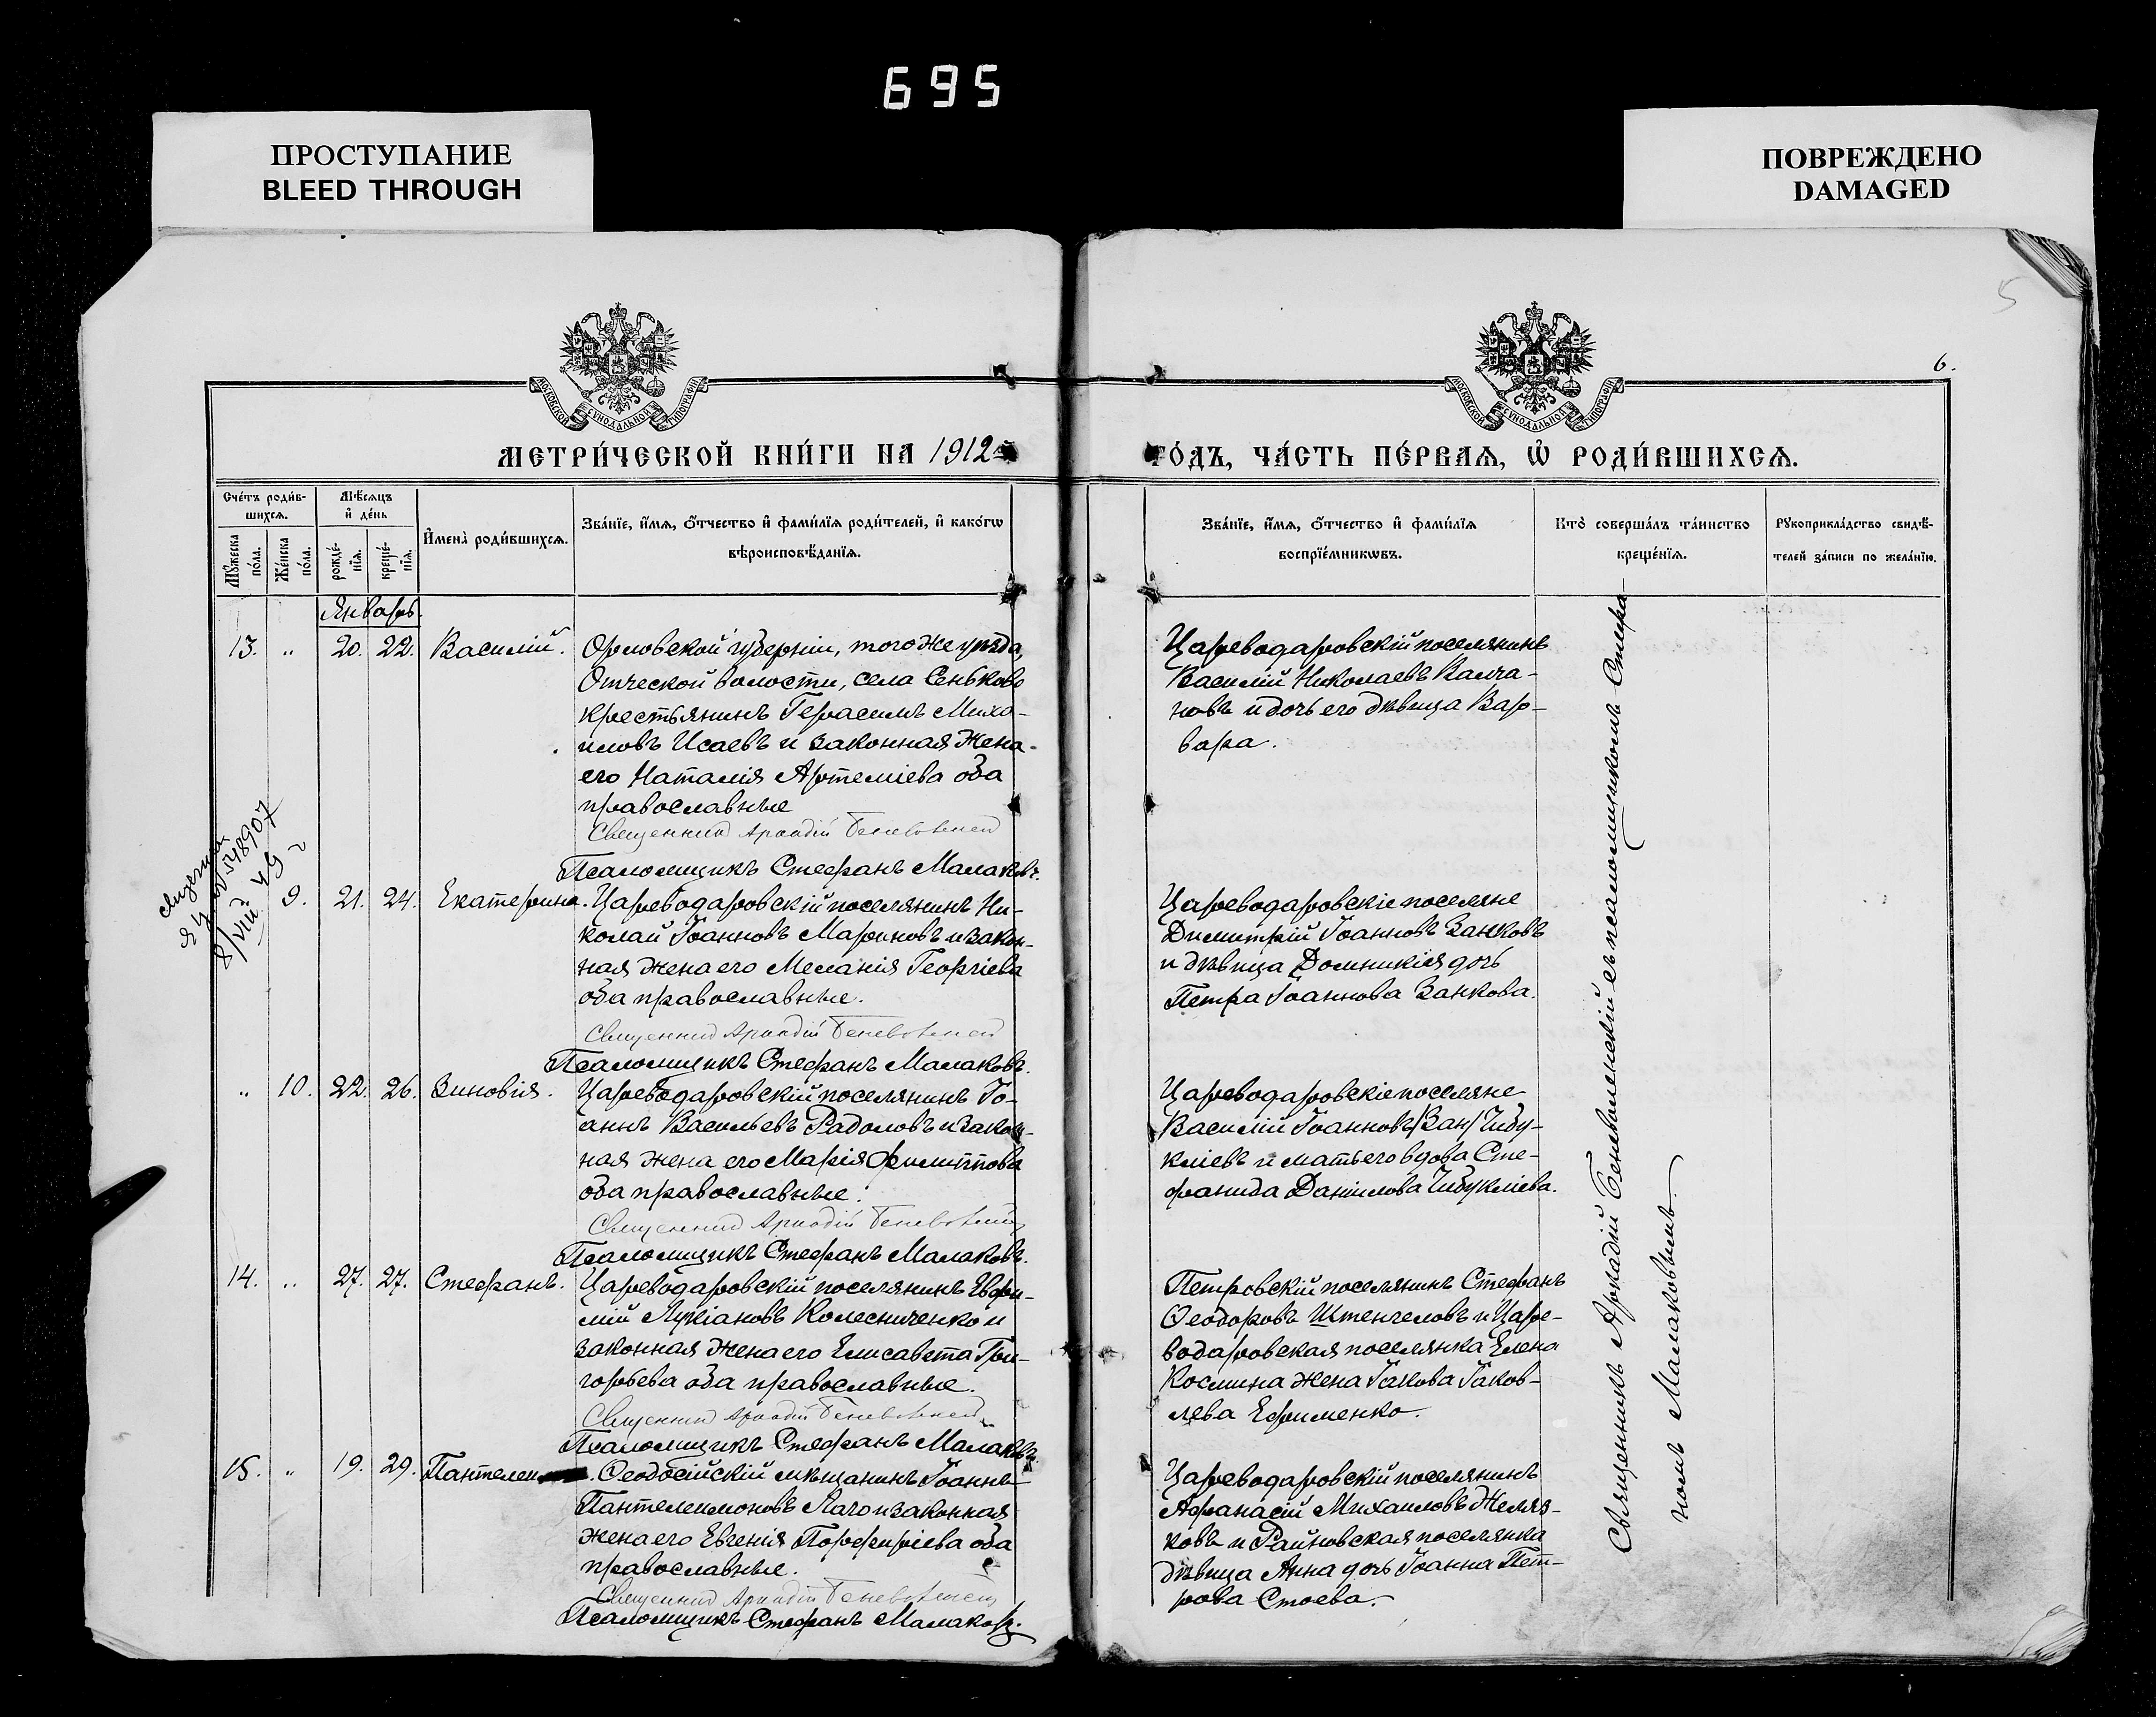 695
ПРОСТУПАНИЕ
BLEED THROUGH
ПОВРЕЖДЕНО
DAMAGED
5
6.
МОСКОВСКОЙ СУНОДАЛЬНОЙ ТИПОГРАФІИ
МОСКОВСКОЙ СУНОДАЛЬНОЙ ТИПОГРАФІИ
МЕТРИ́ЧЕСКОЙ КНИ́ГИ НА 1912
ГО́ДЪ, ЧА́СТЬ ПЕ́РВАѦ, Ѡ҆ РОДИ́ВШИХСѦ.
Сче́тъ роди́в-
шихсѧ.
Мꙋ́жеска
по́ла.
Же́нска
по́ла.
Мѣ́сѧцъ
и҆ де́нь
рожде́-
нїѧ.
креще́-
нїѧ.
И҆мена̀ роди́вшихсѧ.
Зва́нїе, и҆́мѧ, ѻ҆́тчество и҆ фами́лїѧ роди́телей, и҆ како́гѡ
вѣроисповѣ́данїѧ.
Зва́нїе, и҆́мѧ, ѻ҆́тчество и҆ фами́лїѧ
воспрїе́мникѡвъ.
Кто̀ соверша́лъ та́инство
креще́нїѧ.
Рꙋкоприкла́дство свидѣ́-
телей за́писи по жела́нїю.
Январь.
13. „ 20. 22. Василій. Орловской губерніи, того же уѣзда,
Отческой волости, села Сеньково
крестьянинъ Герасимъ Миха-
иловъ Исаевъ и законная жена
его Наталія Артеміева оба
православные
Священник Аркадій Беневоленскій
Псаломщикъ Стефанъ Малаковъ.
Цареводаровскій поселянинъ
Василій Николаевъ Валча-
новъ и дочь его дѣвица Вар-
вара.
8/VIII 49
9. 21. 24. Екатерина. Цареводаровскій поселянинъ Ни-
колай Іоанновъ Мариновъ и закон-
ная жена его Меланія Георгіева
оба православные.
Священник Аркадій Беневоленскій
Псаломщикъ Стефанъ Малаковъ.
Цареводаровскіе поселяне
Димитрій Іоанновъ Занковъ
и дѣвица Домникія дочь
Петра Іоаннова Занкова.
„ 10. 22. 26. Зиновія. Цареводаровскій поселянинъ Іо-
аннъ Васильевъ Радоловъ и закон-
ная жена его Марія Филиппова
оба православные.
Священник Аркадій Беневоленскій
Псаломщикъ Стефанъ Малаковъ.
Цареводаровскіе поселяне
Василій Іоанновъ /Ван/ Чибу-
кліевъ и мать его вдова Сте-
фанида Даніилова Чибукліева.
14. „ 27. 27. Стефанъ. Цареводаровскій поселянинъ Евфи-
мій Лукіановъ Колесниченко и
законная жена его Елисавета Гри-
горьева оба православные.
Священник Аркадій Беневоленскій
Псаломщикъ Стефанъ Малаковъ.
Петровскій поселянинъ Стефанъ
Ѳеодоровъ Штенчеловъ и Царе-
водаровская поселянка Елена
Космина жена Іакова Іаков-
лева Ефименко.
15. „ 19. 29. Пантелеи Ѳеодосійскій мѣщанинъ Іоаннъ
Пантелеимоновъ Лаго и законная
жена его Евгенія Порфиріева оба
православные.
Священник Аркадій Беневоленскій
Псаломщикъ Стефанъ Малаковъ.
Цареводаровскій поселянинъ
Аѳанасій Михаиловъ Желяз-
ковъ и Райновская поселянка
дѣвица Анна дочь Іоанна Пет-
рова Стоева.
Священникъ Аркадій Беневоленскій съ псаломщикомъ Стефа-
номъ Малаковымъ.